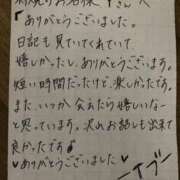 ありがとうございました。
日記も見ていてくれていて
嬉しかったし、ありがとうございます。
短い時間だったけど、楽しかったです。
また、いつか会えたら嬉しいなー
と思っています。次のお話しも出来て
良かったです
ありがとうございました